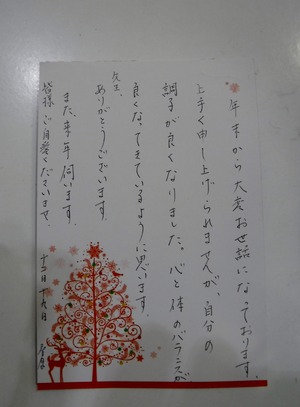 年末から大変お世話になっております。
上手く申し上げられませんが、自分の
調子が良くなりました。心と体のバランスが
良くなってきているように思います。
先生、
ありがとうございます。
また、来年伺います。
皆様ご自愛くださいませ。
十二月十九日